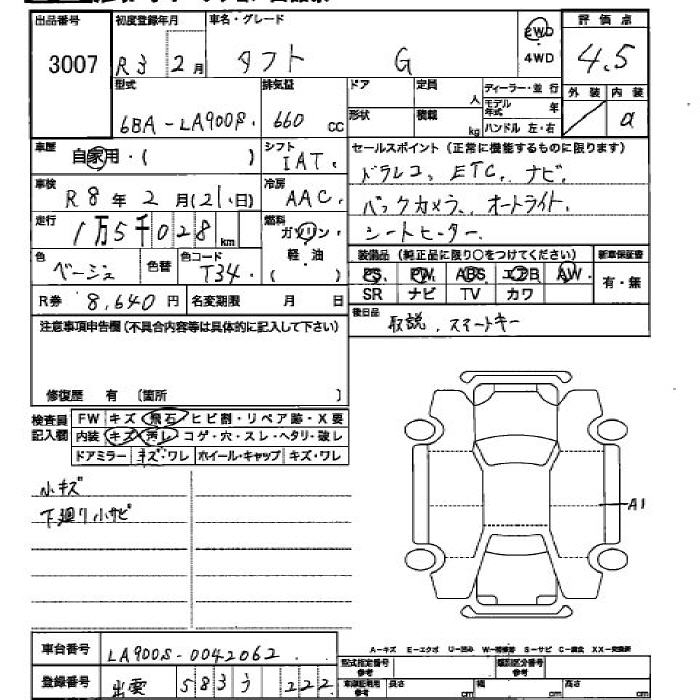 出品番号 3007
初度登録年月 R3 2月
車名・グレード タフト G
2WD
4WD
評価点 4.5
型式 6BA-LA900S.
排気量 660 CC
ドア
定員 人
形状
積載 kg
ディーラー・並行
モデル年式 年
ハンドル 左・右
外装 内装
a
車歴 自家用・( )
シフト IAT.
セールスポイント (正常に機能するものに限ります)
ドラレコ、ETC、ナビ、
バックカメラ、オートライト、
シートヒーター.
車検 R8年2月(21、日)
冷房 AAC.
走行 1万5千028km
燃料 ガソリン・
軽・油
( )
色 ベージュ
色替
色コード T34.
装備品 (純正品に限り○をつけてください)
新車保証書
PS PW ABS エアB AW
有・無
SR ナビ TV カワ
R券 8,640円
名変期限 月 日
後日品 取説、スマートキー
注意事項申告欄 (不具合内容等は具体的に記入して下さい)
修復歴 有 〔箇所 〕
検査員記入欄
FW キズ・飛石・ヒビ割・リペア跡・X要
内装 キズ・汚レ・コゲ・穴・スレ・ヘタリ・破レ
ドアミラー キズ・ワレ ホイール・キャップ キズ・ワレ
小キズ
下廻り小サビ
A1
車台番号 LA900S-0042062
A-キズ E-エクボ
登録番号 583 222
型式指定番号 参考
類別区分番号 参考
長さ cm
幅 cm
高さ cm